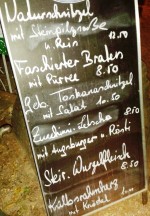 Naturschnitzel
mit Steinpilzsoße
u. Reis 12.50
Faschierter Braten
mit Püree 8.50
Geb. Toskanaschnitzel
mit Salat 10.50
Zucchini-Letscho 8.50
mit Augsburger u. Rösti
Steir. Wurzelfleisch
8.50
Kalbsrahmbg.
mit Knödel